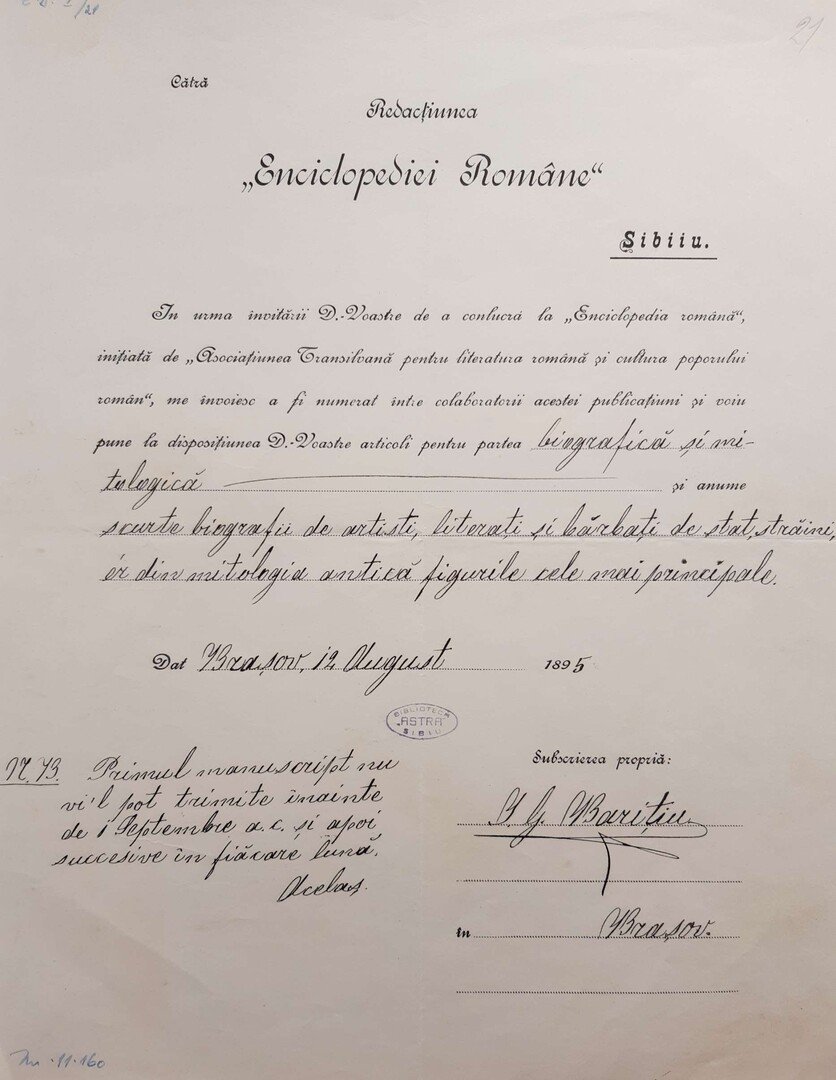 21
Cătră
Redacțiunea
„Enciclopediei Române“
Sibiiu.
In urma invitării D.-Voastre de a conlucră la „Enciclopedia română“,
inițiată de „Asociațiunea Transilvană pentru literatura română și cultura poporului
român“, me învoiesc a fi numerat între colaboratorii acestei publicațiuni și voiu
pune la disposițiunea D.-Voastre articoli pentru partea biografică și mi-
tologică și anume
scurte biografii de artisti, literați și bărbați de stat, străini,
ér din mitologia antică figurile cele mai principale.
Dat Brașov, 12 August 1895
BIBLIOTECA
„ASTRA“
SIBIU
Primul manuscript nu
vi'l pot trimite înainte
de 1 Septembre a.c. și apoi
succesive în fiăcare lună.
Acelaș.
Subscrierea propriă:
I G Barițiu
în Brașov.
11.160